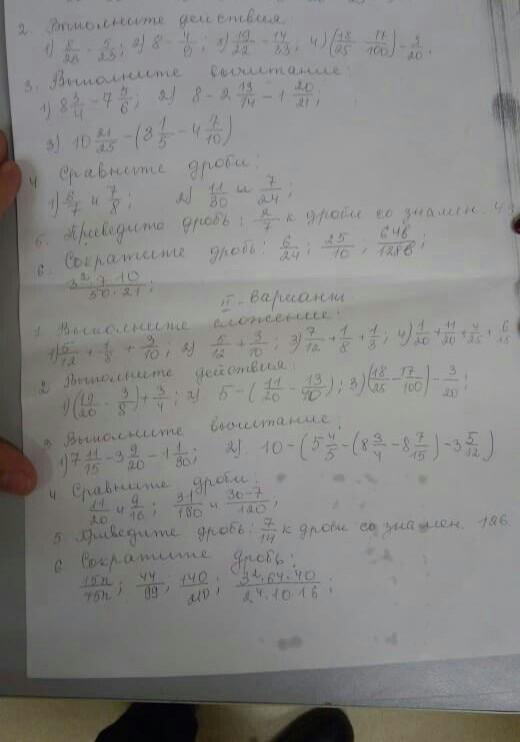 2. Выполните действия
1) 8/23 - 5/23; 2) 8 - 4/9; 3) 19/22 - 14/33; 4) (18/25 - 17/100) - 3/20.
3. Выполните вычитание:
1) 8 3/4 - 7 5/6; 2) 8 - 2 13/14 - 1 20/21;
3) 10 21/25 - (8 1/5 - 4 7/10)
4 Сравните дроби:
1) 6/7 и 7/8; 2) 11/30 и 7/24;
5. Приведите дробь: 2/7 к дроби со знамен. 42
6. Сократите дробь: 6/24; 25/10; 64в/128в;
3²·7·10/50·21;
II - вариант
1 Выполните сложение:
1) 5/12 + 1/8 + 3/10; 2) 5/12 + 3/10; 3) 7/12 + 1/8 + 1/3; 4) 1/20 + 11/20 + 4/25 + 6/25
2 Выполните действия:
1) (19/20 - 3/8) + 3/4; 2) 5 - (11/20 - 13/40); 3) (18/25 - 17/100) - 3/20;
3 Выполните вычитание;
1) 7 11/15 - 3 9/20 - 1 1/30; 2) 10 - (5 4/5 - (8 3/4 - 8 7/15) - 3 5/12)
4 Сравните дроби:
11/20 и 9/16; 31/180 и 30-7/120;
5 Приведите дробь: 7/14 к дроби со знамен. 126
6 Сократите дробь:
15n/45n; 44/99; 140/210; 3²·64·40/24·10·16;